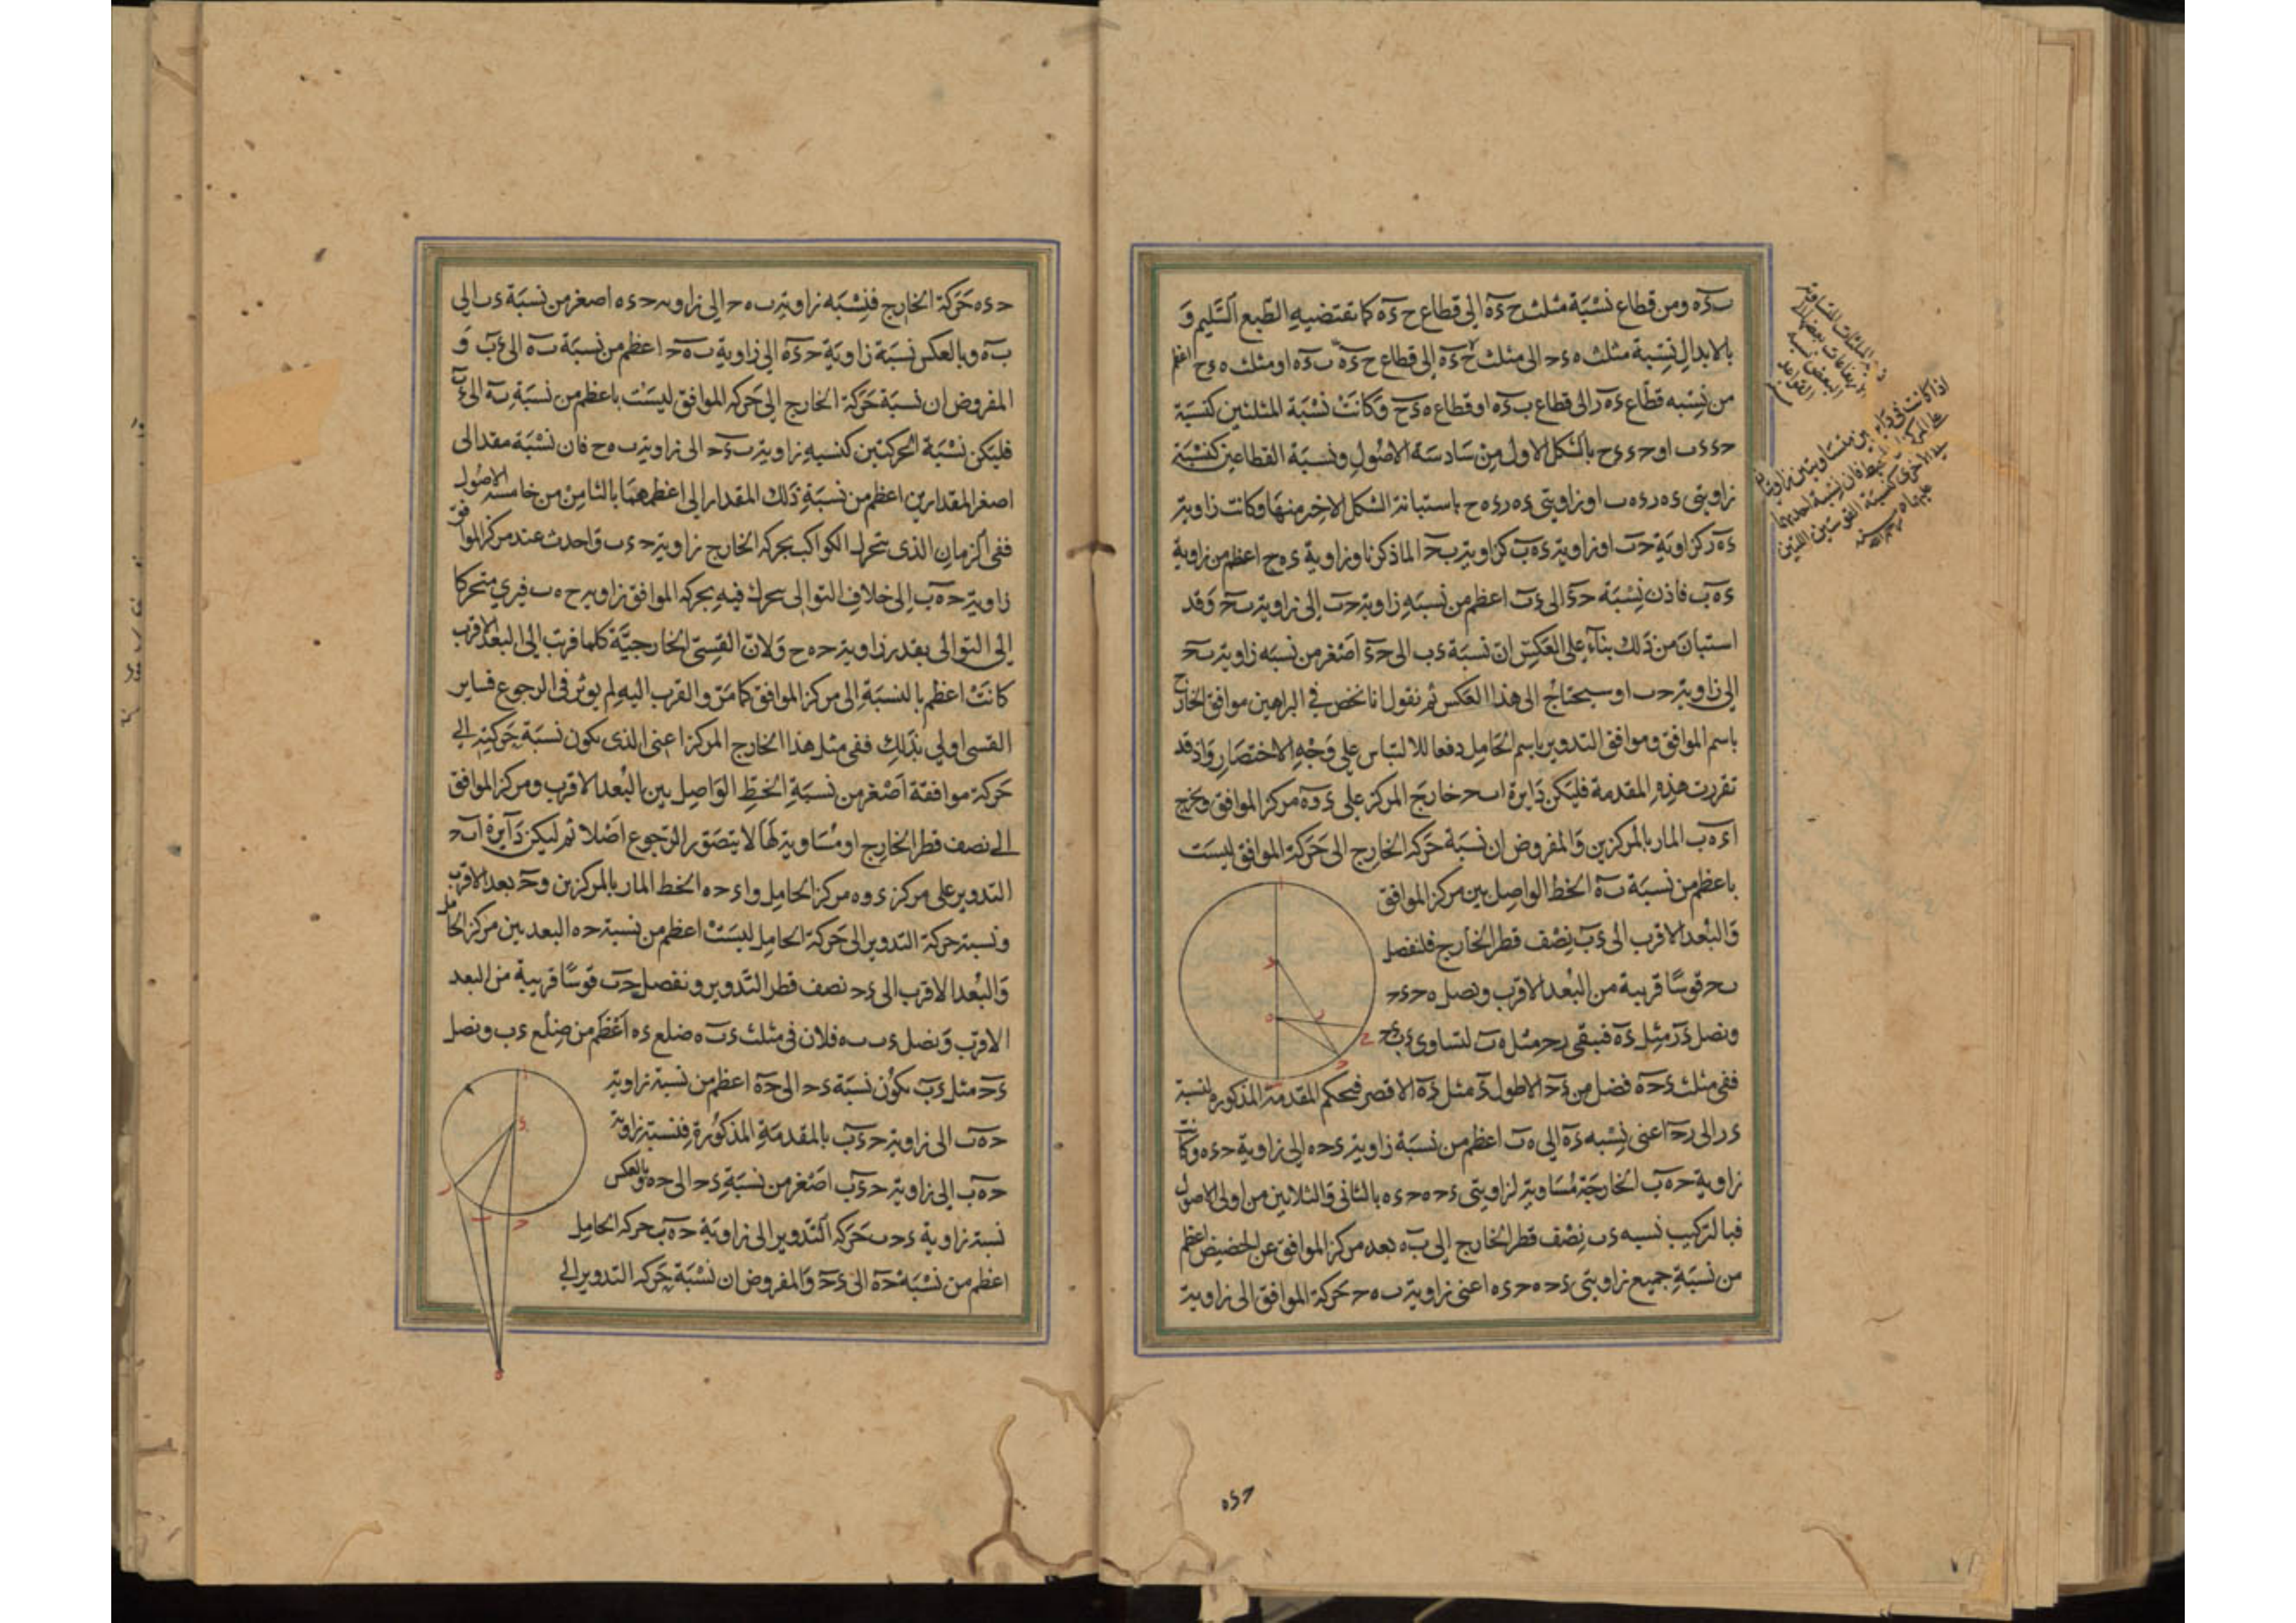 ب‌ءه ومن قطاع نسبة مثلث ح ءه الى قطاع ح ءه كما تقتضيه الطبع السليم و
بالابدال نسبة مثلث ه ءح الى مثلث ح ءه الى قطاع ح ءه ب ءه او مثلث ه ءح اعظم
من نسبه قطاع ءه ر الى قطاع ب ءه او قطاع ه ءح وكانت نسبة المثلثين كنسبة
ح‌ء ءب او ح‌ء ءح بالشكل الاول من سادسة الاصول ونسبة القطاعين كنسبة
زاويتى ءه ر ءه ب او زاويتى ءه ر ءه ح باستبانة الشكل الاخر منها وكانت زاوية
ءه ر كزاوية حب او زاوية ءه ب كزاوية بح لما ذكرنا وزاوية ءه ح اعظم من زاوية
ءه ب فاذن نسبة حء الى ءب اعظم من نسبه زاوية حب الى زاوية بح وقد
استبان من ذلك بناء على العكس ان نسبة ءب الى حء اصغر من نسبه زاوية بح
الى زاوية حب او سيحتاج الى هذا العكس ثم نقول انا نخص فى البراهين موافق الخارج
باسم الموافق وموافق التدوير باسم الحامل دفعا للالتباس على وجه الاختصار واذ قد
تقررت هذه المقدمة فليكن دايرة ابح خارج المركز على ء وه مركز الموافق ونخرج
اءه ب المار بالمركزين والمفروض ان نسبة حركه الخارج الى حركة الموافق ليست
باعظم من نسبة به الخط الواصل بين مركز الموافق
والبعد الاقرب الى ءب نصف قطر الخارج فلنفصل
بح قوسا قريبة من البعد الاقرب ونصل ه ح ءح
ونصل ءر مثل ءه فيبقى رح مثل ه ب لتساوى ءب ءح
ففى مثلث ءح ه فضل من ءح الاطول ءر مثل ءه الاقصر فبحكم المقدمة المذكورة نسبة
ءر الى رح اعنى نسبه ءه الى ه ب اعظم من نسبة زاوية ءح ه الى زاوية ح ءه وكانت
زاوية ح ه ب الخارجة مساوية لزاويتى ءح ه ح ءه بالثانى والثلاثين من اولى الاصول
فبالتركيب نسبه ءب نصف قطر الخارج الى ب ه بعد مركز الموافق عن الحضيض اعظم
من نسبة جميع زاويتى ءح ه ح ءه اعنى زاوية ب ه ح حركة الموافق الى زاوية
ح ءه
ح ءه حركة الخارج فنسبه زاوية ب ه ح الى زاوية ح ءه اصغر من نسبة ءب الى
ب ه وبالعكس نسبة زاوية ح ءه الى زاوية ب ه ح اعظم من نسبة ب ه الى ءب و
المفروض ان نسبة حركة الخارج الى حركه الموافق ليست باعظم من نسبة به الى ءب
فليكن نسبة الحركتين كنسبه زاوية ب ءح الى زاوية ب ه ح فان نسبة مقدار الى
اصغر المقدارين اعظم من نسبة ذلك المقدار الى اعظمهما بالثامن من خامسه الاصول
ففى الزمان الذى يتحرك الكواكب بحركة الخارج زاوية ح ءب واحدث عند مركز الموافق
زاوية ح ه ب الى خلاف التوالى يتحرك فيه بحركة الموافق زاوية ح ه ب فيرى متحركا
الى التوالى بقدر زاوية ح ه ح ولان القسى الخارجية كلما قربت الى البعد الاقرب
كانت اعظم بالنسبة الى مركز الموافق كما مر والقرب اليه لم يوثر فى الرجوع فساير
القسى اولى بذلك ففى مثل هذا الخارج المركز اعنى الذى يكون نسبة حركته الى
حركة موافقة اصغر من نسبة الخط الواصل بين البعد الاقرب ومركز الموافق
الى نصف قطر الخارج او مساوية لها لا يتصور الرجوع اصلا ثم ليكن دايرة ابح
التدوير على مركز ء وه مركز الحامل واءح ه الخط المار بالمركزين وح بعد الاقرب
ونسبة حركة التدوير الى حركة الحامل ليست اعظم من نسبة ح ه البعد بين مركز الحامل
والبعد الاقرب الى ءح نصف قطر التدوير ونفصل حب قوسا قريبة من البعد
الاقرب ونصل ءب ب ه فلان فى مثلث ءب ه ضلع ءه اعظم من ضلع ءب ونصل
ءح مثل ءب يكون نسبة ءح الى ح ه اعظم من نسبة زاوية
ح ه ب الى زاوية ح ءب بالمقدمة المذكورة فنسبة زاوية
ح ه ب الى زاوية ح ءب اصغر من نسبة ءح الى ح ه وبالعكس
نسبة زاوية ءح ب حركه التدوير الى زاوية ح ه ب حركه الحامل
اعظم من نسبة ح ه الى ءح والمفروض ان نسبة حركه التدوير الى